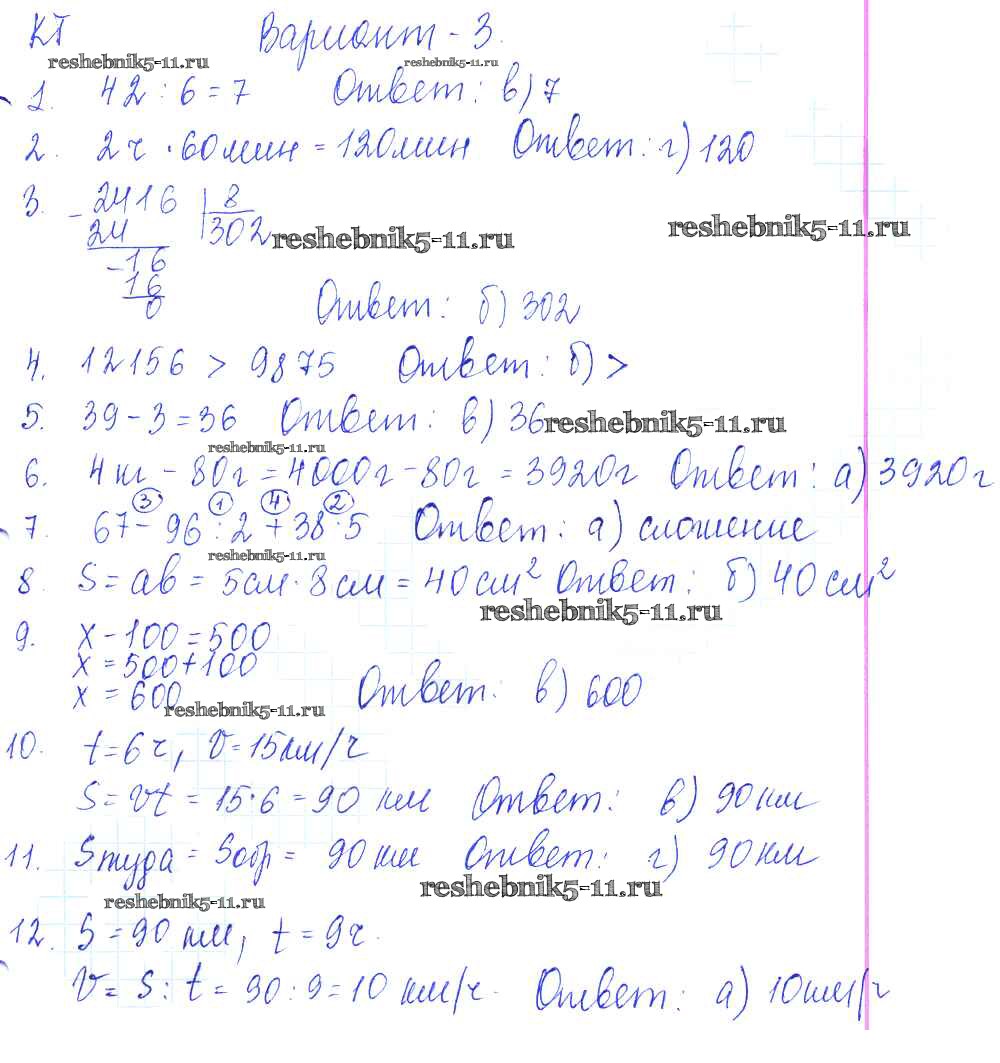 КТ Вариант - 3.
reshebnik5-11.ru reshebnik5-11.ru
1. 42 : 6 = 7 Ответ: в) 7
2. 2ч · 60мин = 120мин Ответ: г) 120
3. - 2416 | 8
24 302 reshebnik5-11.ru reshebnik5-11.ru
- 16
16
0 Ответ: б) 302
4. 12156 > 9875 Ответ: б) >
5. 39 - 3 = 36 Ответ: в) 36 reshebnik5-11.ru
reshebnik5-11.ru
6. 4кг - 80г = 4000г - 80г = 3920г Ответ: а) 3920г
3 1 4 2
7. 67 - 96 : 2 + 38 · 5 Ответ: а) сложение
reshebnik5-11.ru
8 S = ab = 5см · 8см = 40см² Ответ: б) 40см²
reshebnik5-11.ru
9. x - 100 = 500
x = 500 + 100
x = 600 Ответ: в) 600
reshebnik5-11.ru
10. t = 6ч, v = 15км/ч
S = vt = 15 · 6 = 90 км Ответ: в) 90км
11. Sтуда = Sобр = 90км Ответ: г) 90км
reshebnik5-11.ru reshebnik5-11.ru
12. S = 90 км, t = 9ч.
v = S : t = 90 : 9 = 10 км/ч. Ответ: а) 10км/ч